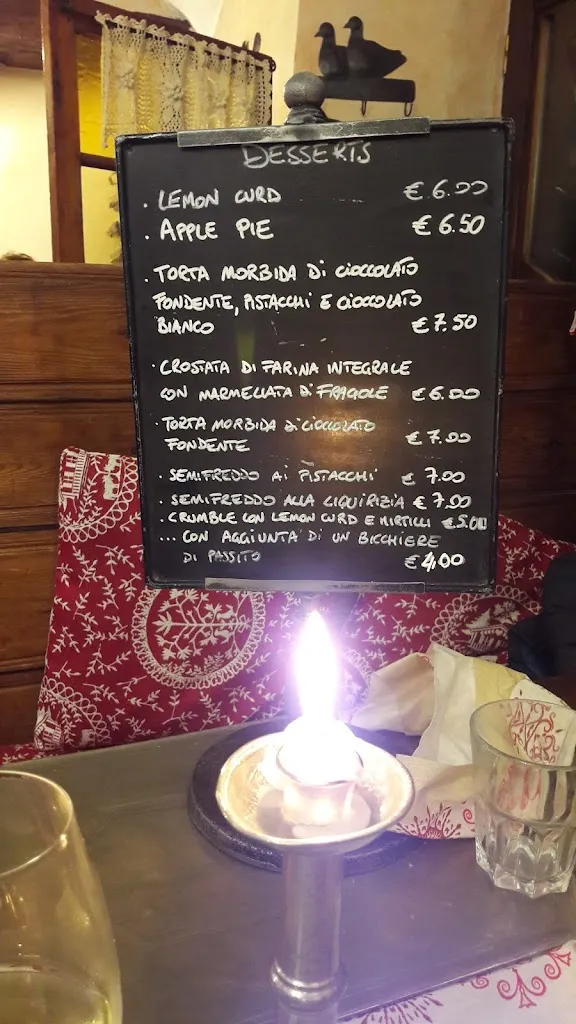 DESSERTS
· LEMON CURD ..... € 6.00
· APPLE PIE € 6.50
· TORTA MORBIDA Di CIOCCOLATO
FONDENTE, PISTACCHI E CIOCCOLATO
BIANCO € 7.50
· CROSTATA DI FARINA INTEGRALE
CON MARMELLATA Di FRAGOLE € 6.00
· TORTA MORBIDA Di CIOCCOLATO
FONDENTE € 7.00
· SEMIFREDDO Ai PISTACCHI € 7.00
· SEMIFREDDO ALLA LIQUIRIZIA € 7.00
· CRUMBLE CON LEMON CURD E MIRTILLI € 5.00
... CON AGGIUNTA DI UN BICCHIERE
DI PASSITO € 4,00